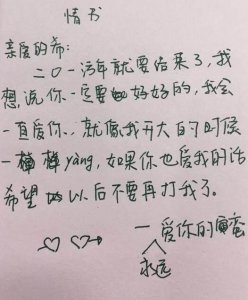 情书
亲爱的希:
二〇一污年就要结来了,我
想说你一定要好好的,我会
一直爱你,就像我开大的时候
一样yàng,如果你也爱我的话
希望以后不要再打我了。
一爱你的蛮
永远